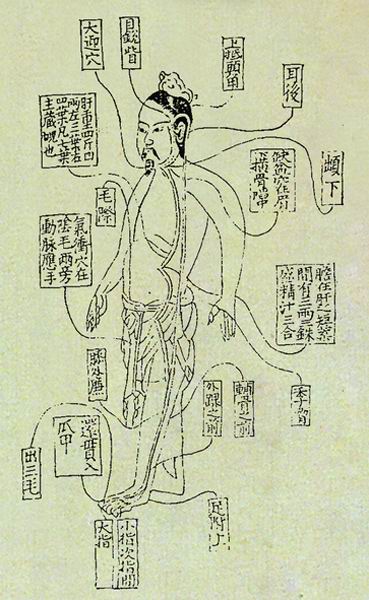 耳後
上抵頭角
目銳眥
大迎穴
䪼下
缺盆穴在肩
橫骨陷中
肝重四斤四
兩左三葉右
四葉凡七葉
主藏魂也
毛際
氣衝穴在
陰毛兩旁
動脈應手
膽在肝之短葉
間有三兩三銖
盛精汁三合
季脅
輔骨之前
外踝之前
膝外廉
還貫入
爪甲
出三毛
足跗上
小指次指間
大指